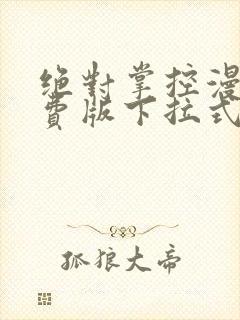 绝對掌控漫
費版下拉式
孤狼大帝